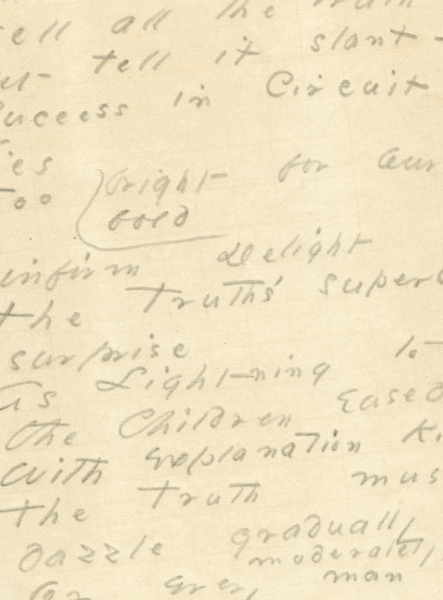 ell all the
tell it slant -
Success in Circuit
ies
Too bright for our
bold
infirm Delight
the Truths' superb
surprise
As Lightning to
the Children Eased
With Explanation Ki
the Truth mus
dazzle gradually
moderately
Or every man